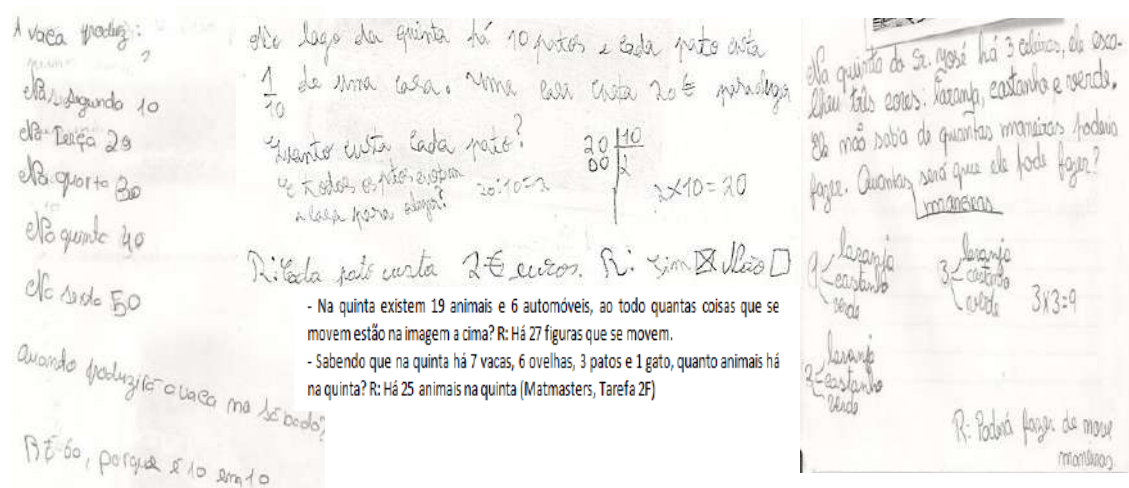 A vaca produz:
Na segunda 10
Na Terça 20
Na quarta 30
Na quinta 40
Na sexta 50
Quando produzirá a vaca no sábado?
R: 60, porque é 10 em 10
No lago da quinta há 10 patos e cada pato custa
1/10 de uma casa. Uma casa custa 20€ para alugar
Quanto custa cada pato?
E todos os patos
a casa para alugar?
20 | 10
00 | 2
20:10=2
2x10=20
R: Cada pato custa 2€ euros. R: Sim ☒ Não ☐
- Na quinta existem 19 animais e 6 automóveis, ao todo quantas coisas que se
movem estão na imagem a cima? R: Há 27 figuras que se movem.
- Sabendo que na quinta há 7 vacas, 6 ovelhas, 3 patos e 1 gato, quanto animais há
na quinta? R: Há 25 animais na quinta (Matmasters, Tarefa 2F)
Na quinta do Sr. José há 3 colinas, ele esco-
lheu três cores: laranja, castanho e verde.
Ele não sabia de quantas maneiras poderia
fazer. Quantas será que ele pode fazer?
maneiras
1 laranja
castanho
verde
3 laranja
castanho
verde
3x3=9
2 laranja
castanho
verde
R: Poderá fazer de nove
maneiras.